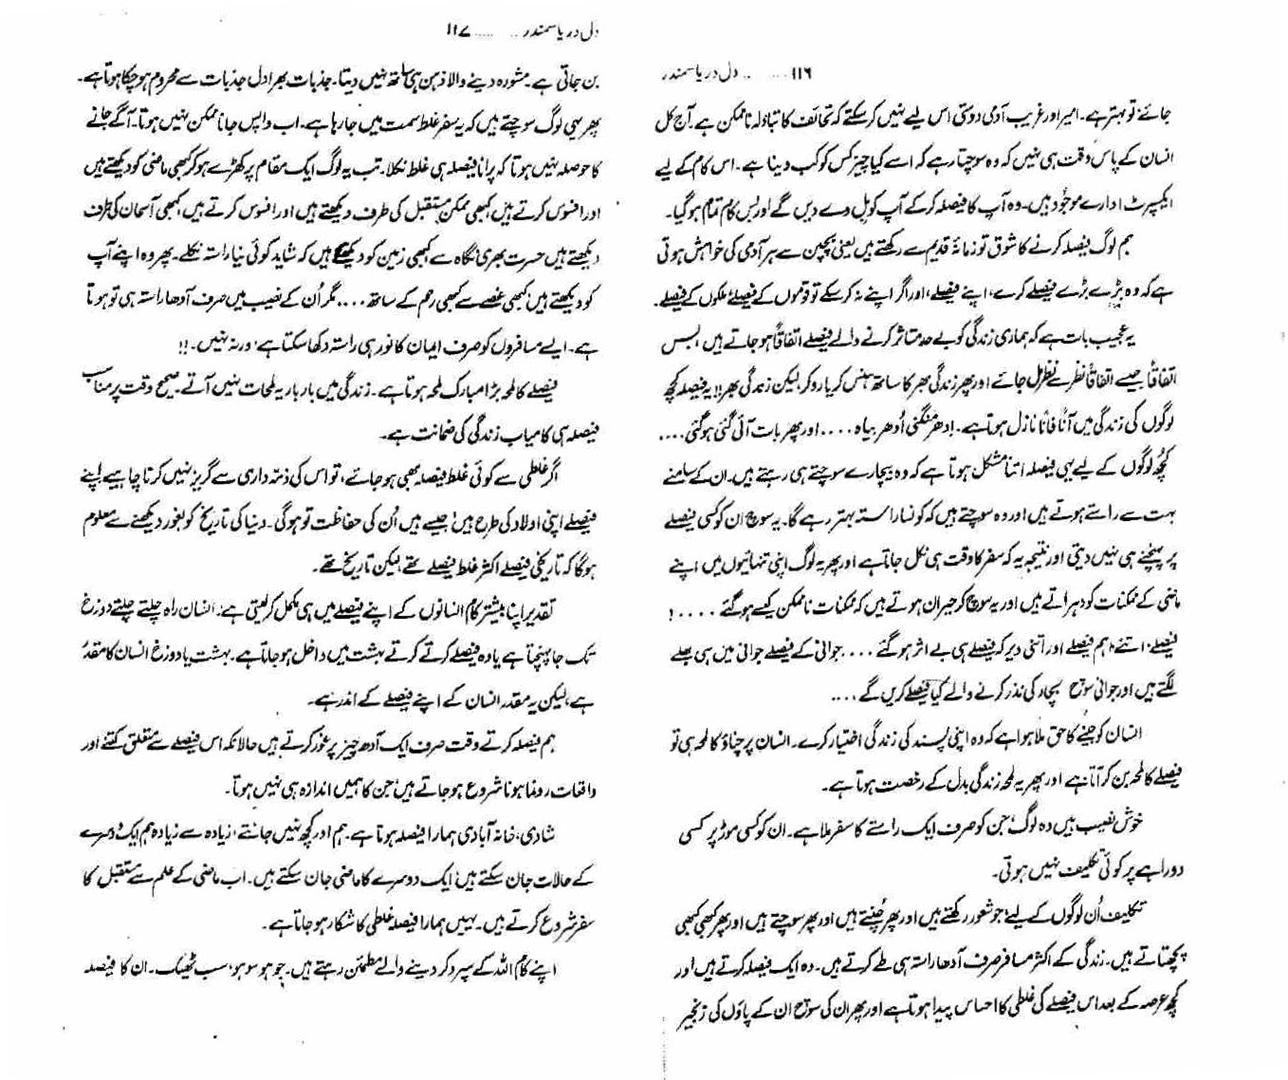 ۱۱۶ ........ دل دریا سمندر
جائے تو بہتر ہے۔ امیر اور غریب آدمی دوستی اس لیے نہیں کر سکتے کہ تحائف کا تبادلہ ناممکن ہے۔ آج کل
انسان کے پاس وقت ہی نہیں کہ وہ سوچتا رہے کہ اسے کیا چیز کس کو کب دینا ہے۔ اس کام کے لیے
ایکسپرٹ ادارے موجود ہیں۔ وہ آپ کا فیصلہ کر کے آپ کو بل دے دیں گے اور بس کام تمام ہو گیا۔
ہم لوگ فیصلہ کرنے کا شوق تو زمانۂ قدیم سے رکھتے ہیں یعنی بچپن سے ہر آدمی کی خواہش ہوتی
ہے کہ وہ بڑے بڑے فیصلے کرے، اپنے فیصلے، اور اگر اپنے نہ کر سکے تو قوموں کے فیصلے، ملکوں کے فیصلے۔
یہ عجیب بات ہے کہ ہماری زندگی کو بے حد متاثر کرنے والے فیصلے اتفاقاً ہو جاتے ہیں، بس
اتفاقاً جیسے اتفاقاً نظر سے نظر مل جائے اور پھر زندگی بھر کا ساتھ ہنس کر یا رو کر لیکن زندگی بھر!! یہ فیصلہ کچھ
لوگوں کی زندگی میں آناً فاناً نازل ہوتا ہے۔ اِدھر منگنی اُدھر بیاہ .... اور پھر بات آئی گئی ہو گئی ....
کچھ لوگوں کے لیے یہی فیصلہ اتنا مشکل ہوتا ہے کہ وہ بیچارے سوچتے ہی رہتے ہیں۔ ان کے سامنے
بہت سے راستے ہوتے ہیں اور وہ سوچتے ہیں کہ کونسا راستہ بہتر رہے گا۔ یہ سوچ ان کو کسی فیصلے
پر پہنچنے ہی نہیں دیتی اور نتیجہ یہ کہ سفر کا وقت ہی نکل جاتا ہے اور پھر یہ لوگ اپنی تنہائیوں میں اپنے
ماضی کے ممکنات کو دہراتے ہیں اور یہ سوچ کر حیران ہوتے ہیں کہ ممکنات ناممکن کیسے ہو گئے ....؟
فیصلے، اتنے اہم فیصلے اور اتنی دیر کہ فیصلے ہی بے اثر ہو گئے .... جوانی کے فیصلے جوانی میں ہی بھلے
لگتے ہیں اور جوانی سوچ بچار کی نذر کرنے والے کیا فیصلے کریں گے ....
انسان کو جینے کا حق ملا ہوا ہے کہ وہ اپنی پسند کی زندگی اختیار کرے۔ انسان پر چناؤ کا لمحہ ہی تو
فیصلے کا لمحہ بن کر آتا ہے اور پھر یہ لمحہ زندگی بدل کے رخصت ہوتا ہے۔
خوش نصیب ہیں وہ لوگ جن کو صرف ایک راستے کا سفر ملا ہے۔ ان کو کسی موڑ پر کسی
دوراہے پر کوئی تکلیف نہیں ہوتی۔
تکلیف اُن لوگوں کے لیے جو شعور رکھتے ہیں اور پھر چُنتے ہیں اور پھر سوچتے ہیں اور پھر کبھی کبھی
پچھتاتے ہیں۔ زندگی کے اکثر مسافر صرف آدھا راستہ ہی طے کرتے ہیں۔ وہ ایک فیصلہ کرتے ہیں اور
کچھ عرصہ کے بعد اس فیصلے کی غلطی کا احساس پیدا ہوتا ہے اور پھر ان کی سوچ ان کے پاؤں کی زنجیر
دل دریا سمندر ........ ۱۱۷
بن جاتی ہے۔ مشورہ دینے والا ذہن ہی ساتھ نہیں دیتا۔ جذبات بھرا دل جذبات سے محروم ہو چکا ہوتا ہے۔
پھر یہی لوگ سوچتے ہیں کہ یہ سفر غلط سمت میں جا رہا ہے۔ اب واپس جانا ممکن نہیں ہوتا۔ آگے جانے
کا حوصلہ نہیں ہوتا کہ پرانا فیصلہ ہی غلط نکلا۔ تب یہ لوگ ایک مقام پر کھڑے ہو کر کبھی ماضی کو دیکھتے ہیں
اور افسوس کرتے ہیں، کبھی ممکن مستقبل کی طرف دیکھتے ہیں اور افسوس کرتے ہیں، کبھی آسمان کی طرف
دیکھتے ہیں حسرت بھری نگاہ سے، کبھی زمین کو دیکھتے ہیں کہ شاید کوئی نیا راستہ نکلے۔ پھر وہ اپنے آپ
کو دیکھتے ہیں، کبھی غصے سے کبھی رحم کے ساتھ .... مگر اُن کے نصیب میں صرف آدھا راستہ ہی تو ہوتا
ہے۔ ایسے مسافروں کو صرف ایمان کا نور ہی راستہ دکھا سکتا ہے، ورنہ نہیں۔!!
فیصلے کا لمحہ بڑا مبارک لمحہ ہوتا ہے۔ زندگی میں بار بار یہ لمحات نہیں آتے۔ صحیح وقت پر مناسب
فیصلہ ہی کامیاب زندگی کی ضمانت ہے۔
اگر غلطی سے کوئی غلط فیصلہ بھی ہو جائے، تو اس کی ذمّہ داری سے گریز نہیں کرنا چاہیے۔ اپنے
فیصلے اپنی اولاد کی طرح ہیں، جیسے ہیں اُن کی حفاظت تو ہو گی۔ دنیا کی تاریخ کو بغور دیکھنے سے معلوم
ہو گا کہ تاریخی فیصلے اکثر غلط فیصلے تھے لیکن تاریخ تھے۔
تقدیر اپنا بیشتر کام انسانوں کے اپنے فیصلے میں ہی مکمل کر لیتی ہے۔ انسان راہ چلتے چلتے دوزخ
تک جا پہنچتا ہے یا وہ فیصلے کرتے کرتے بہشت میں داخل ہو جاتا ہے۔ بہشت یا دوزخ انسان کا مقدر
ہے، لیکن یہ مقدر انسان کے اپنے فیصلے کے اندر ہے۔
ہم فیصلہ کرتے وقت صرف ایک آدھ چیز پر غور کرتے ہیں حالانکہ اس فیصلے سے متعلق کتنے اور
واقعات رونما ہونا شروع ہو جاتے ہیں، جن کا ہمیں اندازہ ہی نہیں ہوتا۔
شادی، خانہ آبادی ہمارا فیصلہ ہوتا ہے۔ ہم اور کچھ نہیں جانتے، زیادہ سے زیادہ ہم ایک دوسرے
کے حالات جان سکتے ہیں، ایک دوسرے کا ماضی جان سکتے ہیں۔ اب ماضی کے علم سے مستقبل کا
سفر شروع کرتے ہیں۔ یہیں ہمارا فیصلہ غلطی کا شکار ہو جاتا ہے۔
اپنے کام اللہ کے سپرد کر دینے والے مطمئن رہتے ہیں۔ جو ہو سو ہو، سب ٹھیک۔ ان کا فیصلہ